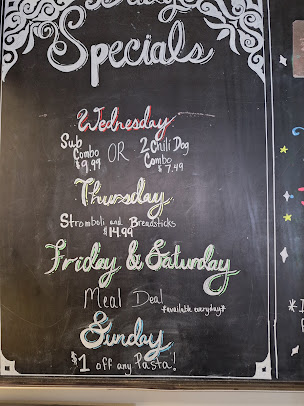 Daily
Specials
Wednesday
Sub Combo $9.99 OR 2 Chili Dog Combo $7.49
Thursday
Stromboli and Breadsticks
$14.99
Friday & Saturday
Meal Deal
*available everyday*
Sunday
$1 off any Pasta!